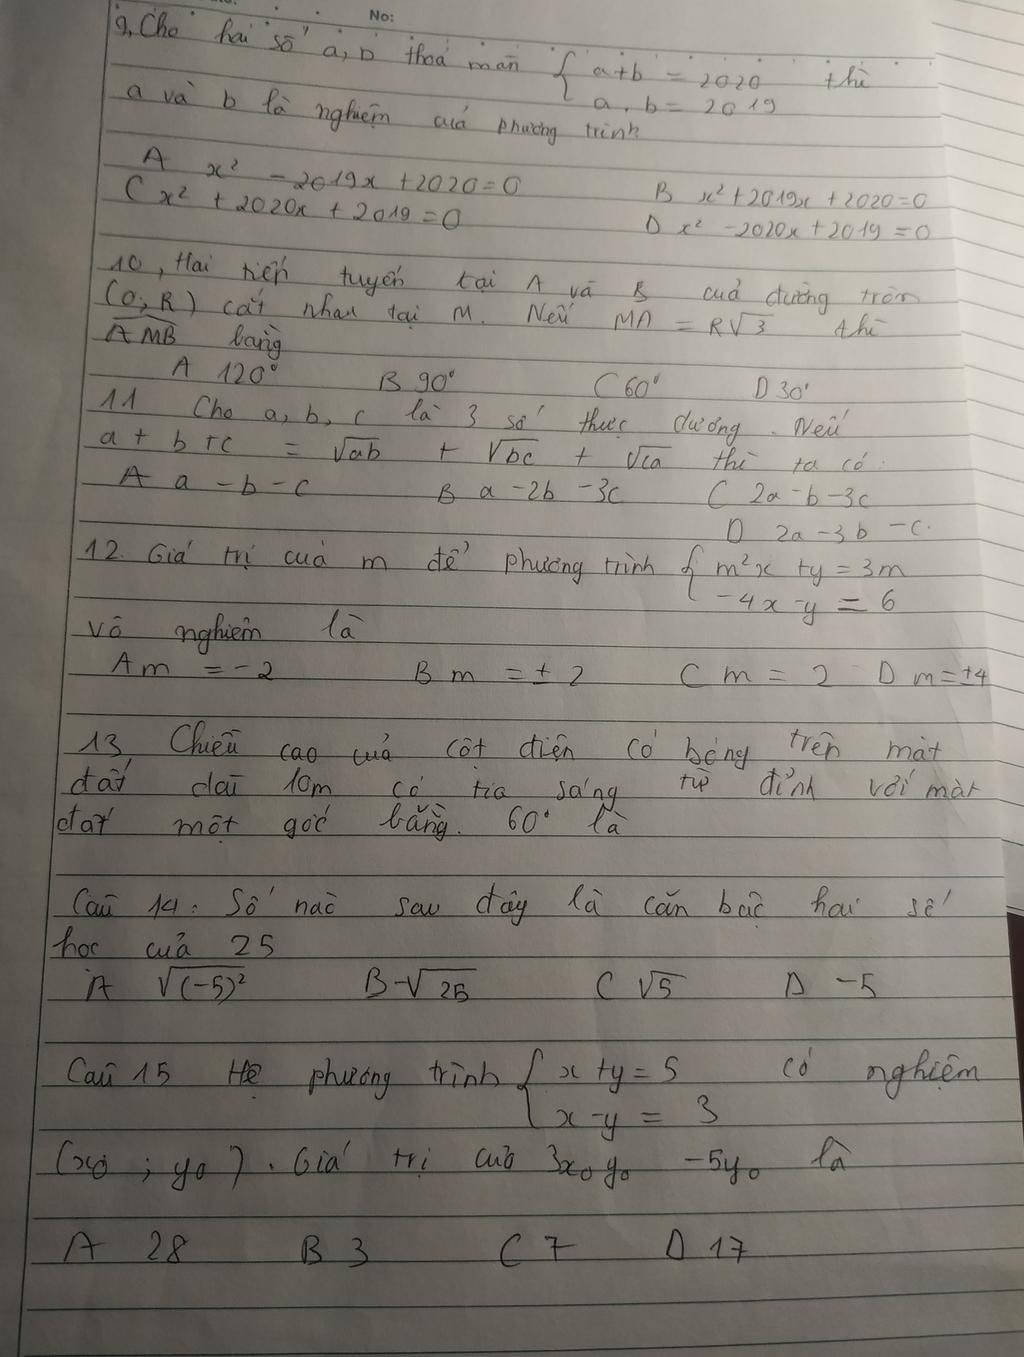 No:
9, Cho hai số a, b thoả mãn { a+b = 2020 thì
a . b = 2019
a và b là nghiệm của phương trình
A x² - 2019x + 2020 = 0
B x² + 2019x + 2020 = 0
C x² + 2020x + 2019 = 0
D x² - 2020x + 2019 = 0
10, Hai tiếp tuyến tại A và B của đường tròn
(O, R) cắt nhau tại M. Nếu MA = R√3 thì
AMB bằng
A 120° B 90° C 60° D 30°
11 Cho a, b, c là 3 số thực dương. Nếu
a + b + c = √ab + √bc + √ca thì ta có:
A a - b - c B a - 2b - 3c C 2a - b - 3c
D 2a - 3b - c.
12. Giá trị của m để phương trình { m²x + y = 3m
-4x - y = 6
vô nghiệm là
A m = -2 B m = ± 2 C m = 2 D m = ±4
13, Chiều cao của cột điện có bóng trên mặt
đất dài 10m có tia sáng từ đỉnh với mặt
đất một góc bằng. 60° là
Câu 14: Số nào sau đây là căn bậc hai số
học của 25
A √(-5)² B -√25 C √5 D -5
Câu 15 Hệ phương trình { x + y = 5 có nghiệm
x - y = 3
(x₀ ; y₀). Giá trị của 3x₀y₀ - 5y₀ là
A 28 B 3 C 7 D 17